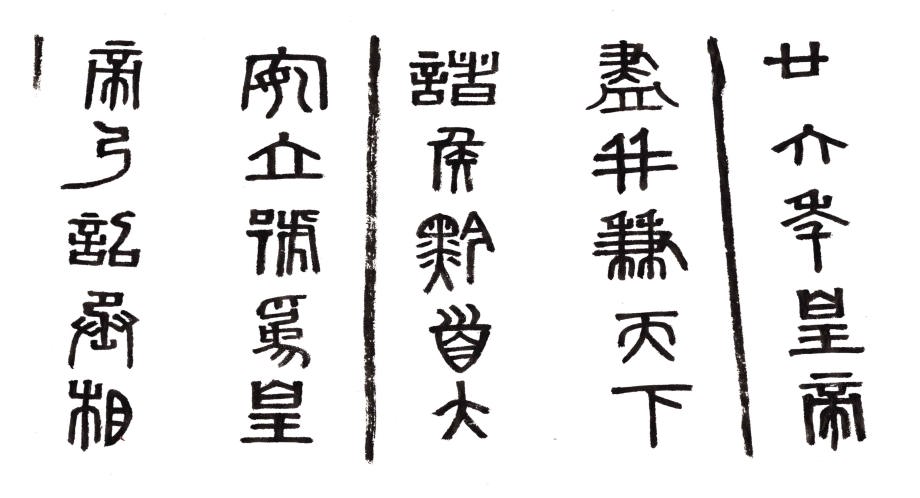 廿六年皇帝
盡并兼天下
諸侯黔首大
安立號爲皇
帝乃詔丞相